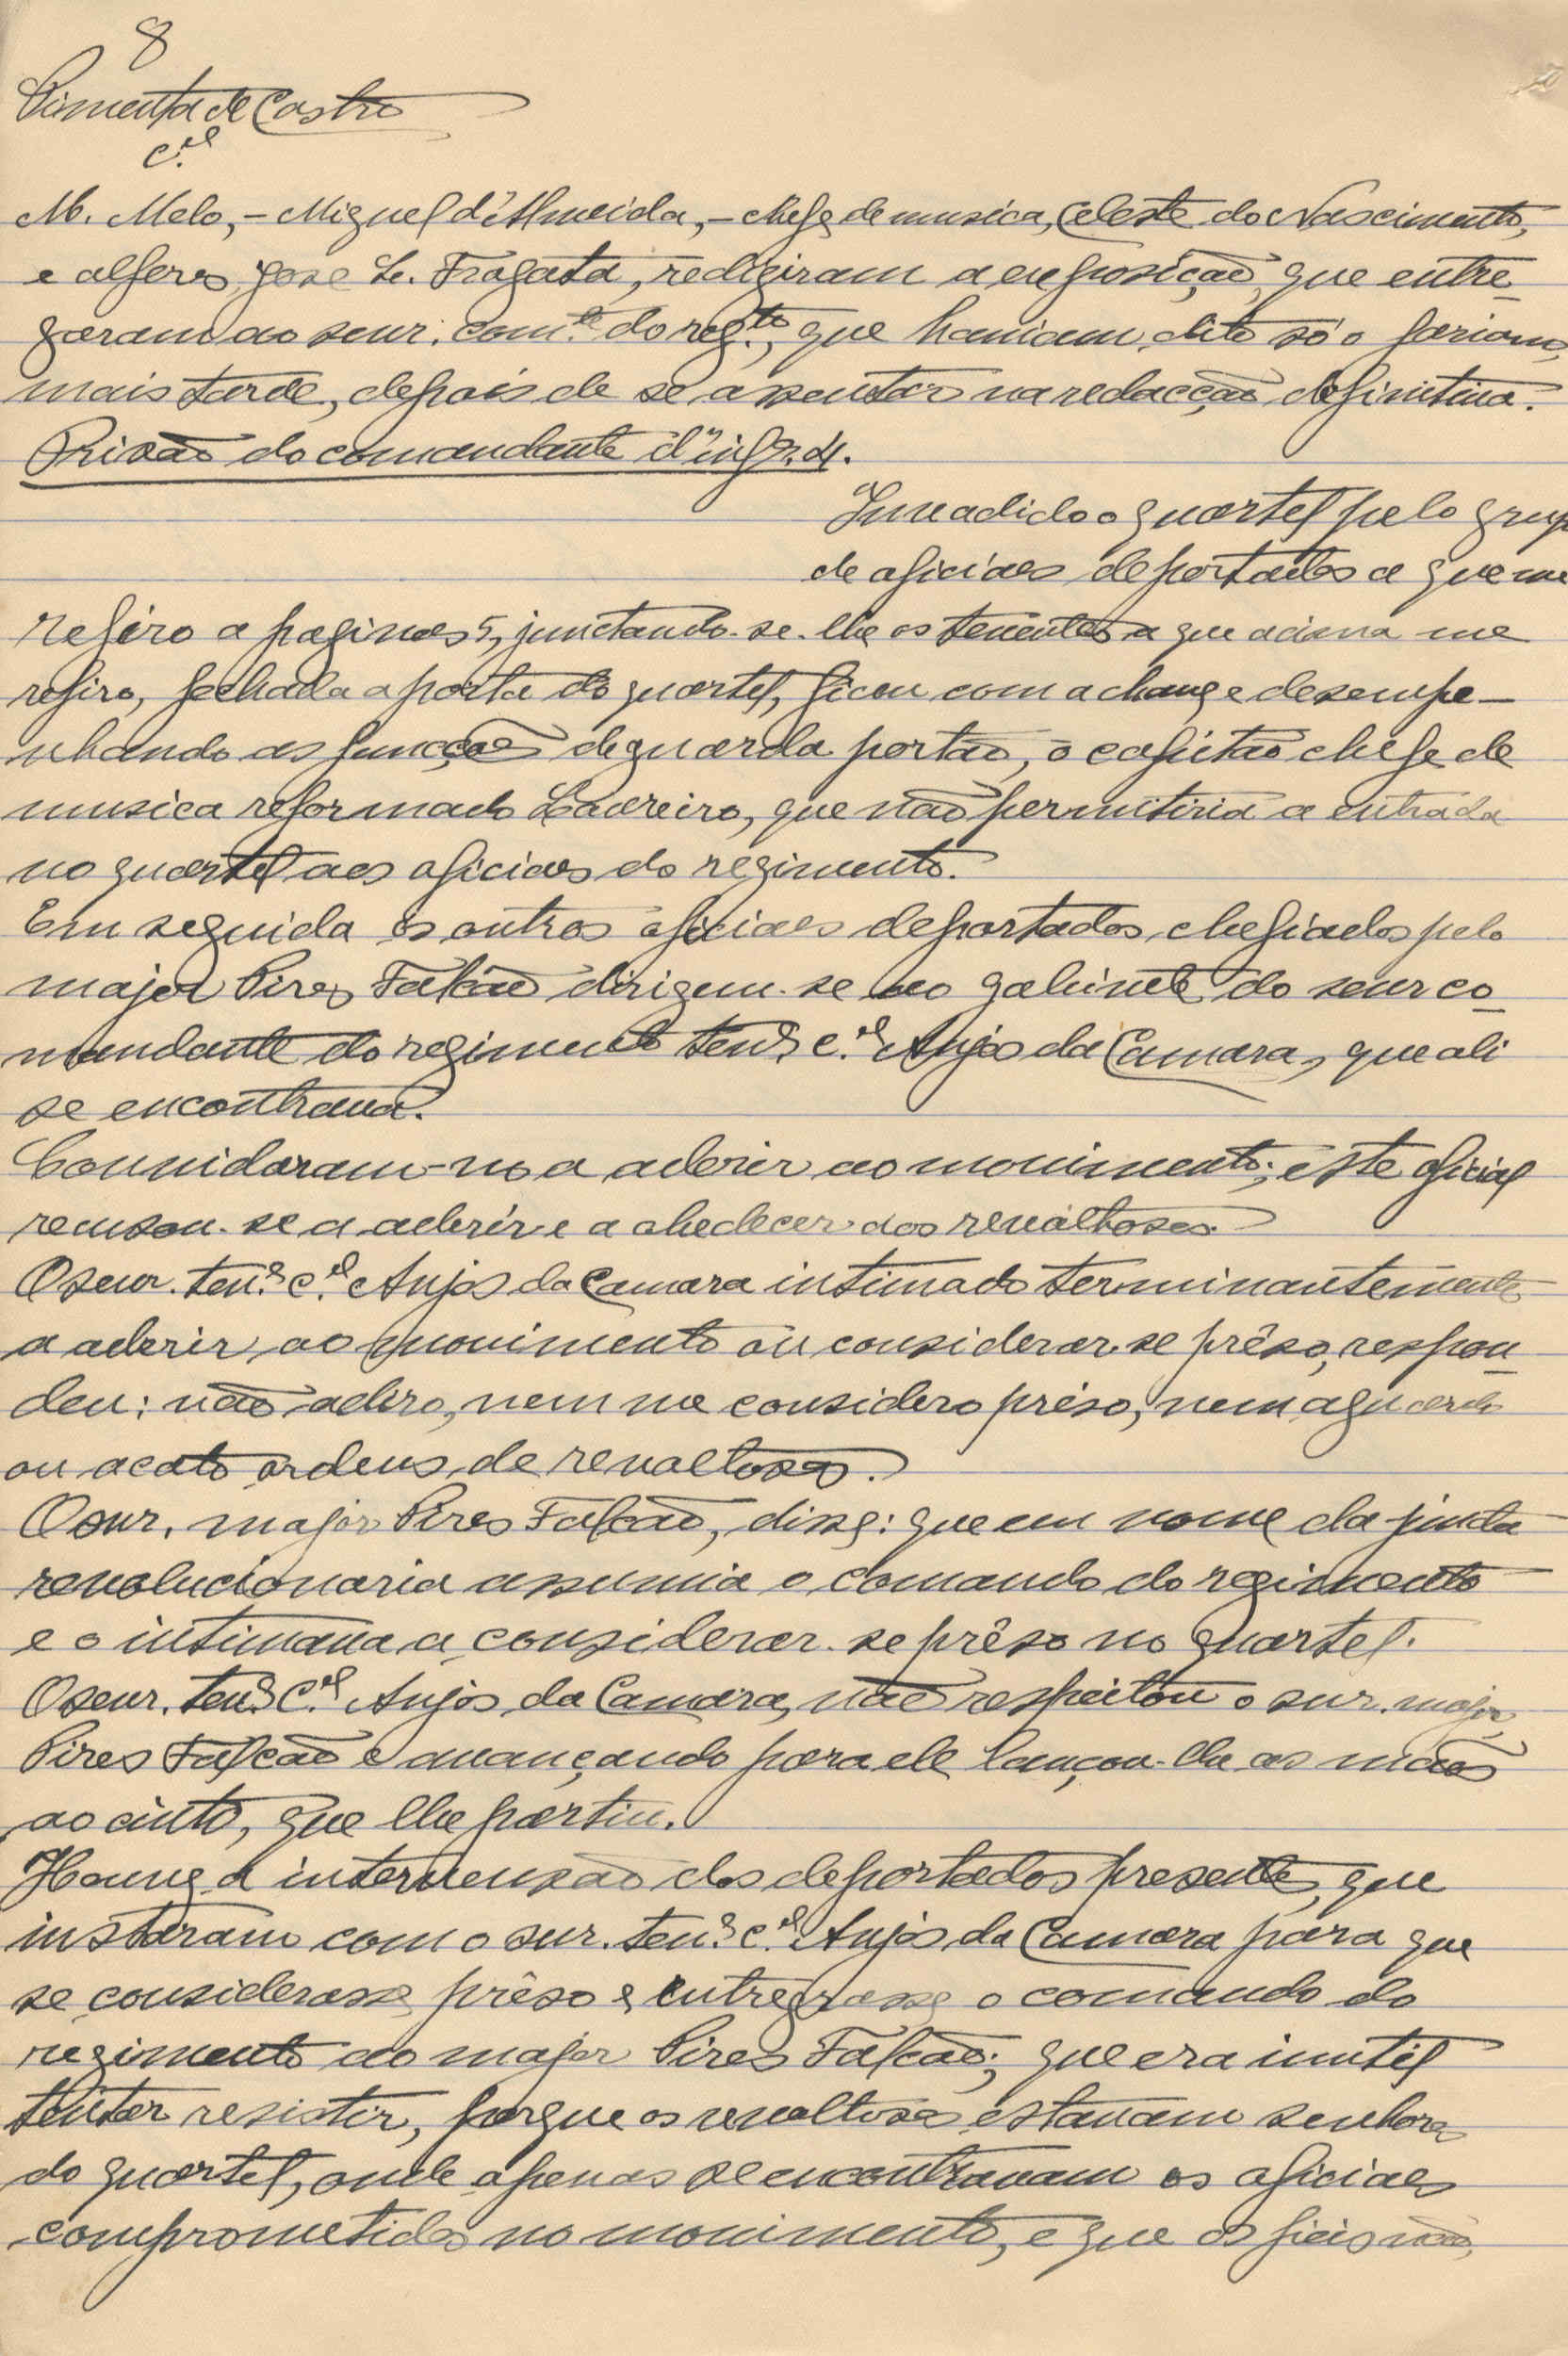 8
Pimenta de Castro
c.el
M. Melo, - Miguel d'Almeida, - chefe de musica, Celeste do Nascimento,
e alferes, José L. Fragata, redigiram a exposição, que entre-
garam ao senr. com.te do reg.to, que haviam dito só o fariam,
mais tarde, depois de se assentar na redacção definitiva.
Prisão do comandante d'inf.ª 4.
Invadido o quartel pelo grupo
de oficiaes deportados a que me
refiro a paginas 5, junctando-se-lhe os tenentes a que acima me
refiro, fechada a porta do quartel, ficou com a chave e desempe-
nhando as funcções de guarda portão, o capitão chefe de
musica reformado Loureiro, que não permitiria a entrada
no quartel aos oficiaes do regimento.
Em seguida os outros oficiaes deportados, chefiados pelo
major Pires Falcão dirigem-se ao gabinete do senr co-
mandante do regimento ten.e c.el Anjos da Camara, que ali
se encontrava.
Convidaram-no a aderir ao movimento; este oficial
recusou-se a aderir e a obedecer aos revoltosos
O senr. ten.e c.el Anjos da Camara intimado terminantemente
a aderir, ao movimento ou considerar-se prêso, respon-
deu: não adiro, nem me considero prêso, nem aguardo
ou acato ordens, de revoltosos.
O snr. major Pires Falcão, disse: que em nome da junta
revolucionaria assumia o comando do regimento
e o intimava a considerar-se prêso no quartel.
O senr. ten.e c.el Anjos da Camara, não respeitou o snr. major
Pires Falcão e avançando para ele lançou-lhe as mãos
ao cinto, que lhe partiu.
Houve a intervensão dos deportados presente, que
instaram com o snr. ten.e c.el Anjos da Camara para que
se considerasse prêso e entregasse o comando do
regimento ao major Pires Falcão; que era inutil
tentar resistir, porque os revoltosos estavam senhores
do quartel, onde apenas se encontravam os oficiaes
comprometidos no movimento, e que os fieis não,